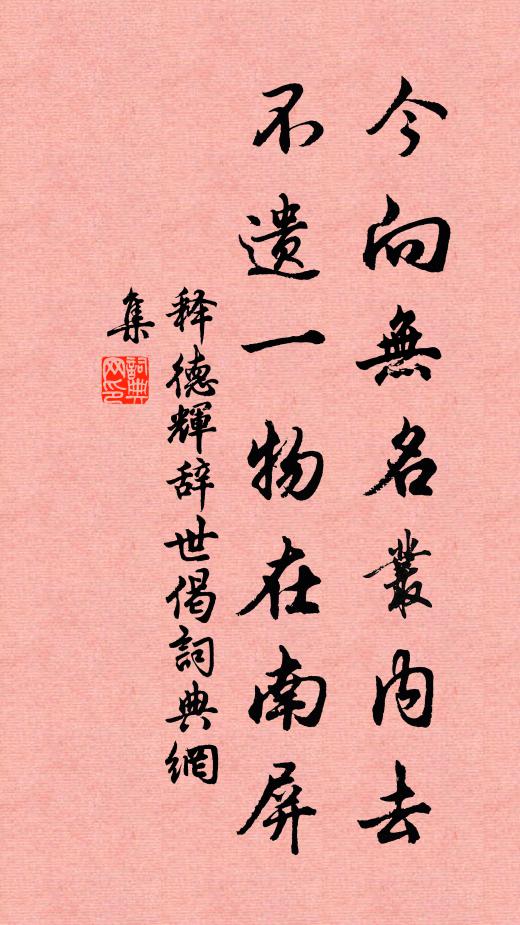 今向無名叢内去
不遗一物在南屏
释德輝辞世偈詞典網
集
詞典
网印